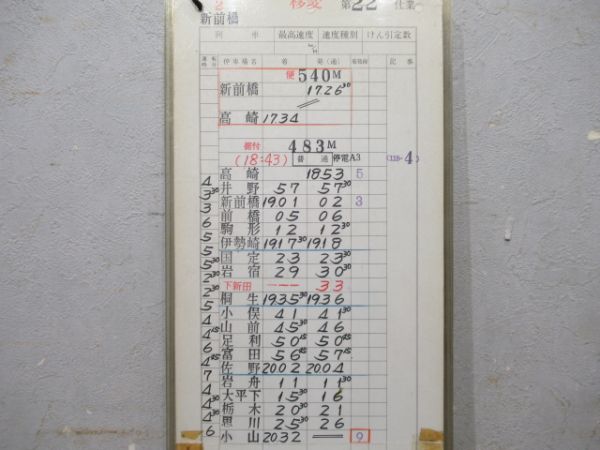 2 移変 第22仕業
新前橋
列車 最高速度 速度種別 けん引定数
km/H
運転時分 停車場名 着 発(通) 着発線 記事
便 540M
新前橋 1726 30
高崎 1734
棚付 483M
(18:43) 普通 停電A3 (118-4)
高崎 1853 5
4 井野 57 57 30
3 30 新前橋 1901 02 3
3 前橋 05 06
6 駒形 12 12 30
5 伊勢崎 1917 30 1918
5 国定 23 23 30
5 30 岩宿 29 30 30
2 30 下新田 ーーー 33
2 30 桐生 1935 30 1936
5 小俣 41 41 30
4 山前 45 30 46
4 15 足利 50 15 50 45
6 富田 56 45 57 15
4 45 佐野 2002 2004
7 岩舟 11 11 30
4 大平下 15 30 16
4 30 栃木 20 30 21
4 30 思川 25 30 26
6 小山 2032 9